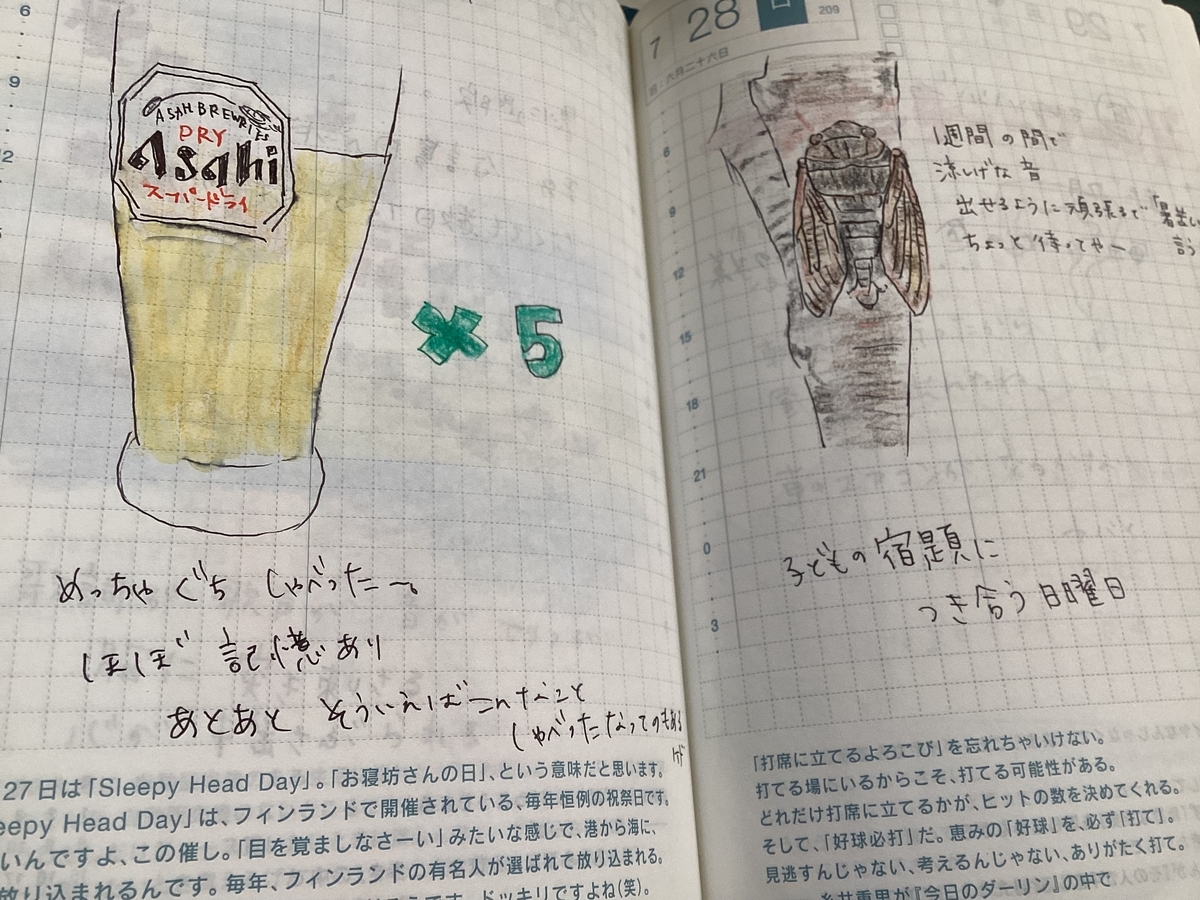 6
9
12
ASAHI BREWERIES
DRY
Asahi
スーパードライ
×5
めっちゃ ぐち しゃべったー。
ほぼ 記憶あり
あとあと そういえばこんなこと
しゃべったなってのもある
けど
27日は「Sleepy Head Day」。「お寝坊さんの日」、という意味だと思います。
eepy Head Day」は、フィンランドで開催されている、毎年恒例の祝祭日です。
いんですよ、この催し。「目を覚ましなさーい」みたいな感じで、港から海に、
放り込まれるんです。毎年、フィンランドの有名人が選ばれて放り込まれる。
ドッキリですよね(笑)。
7 28 日 209
旧:六月二十六日
6
9
12
15
18
21
0
3
1週間の間で
涼しげな音
出せるように頑張るで「暑苦しい
ちょっと待ってやー 言う
子どもの宿題に
つき合う日曜日
「打席に立てるよろこび」を忘れちゃいけない。
打てる場にいるからこそ、打てる可能性がある。
どれだけ打席に立てるかが、ヒットの数を決めてくれる。
そして、「好球必打」だ。恵みの「好球」を、必ず「打て」。
見逃すんじゃない、考えるんじゃない、ありがたく打て。
糸井重里が『今日のダーリン』の中で